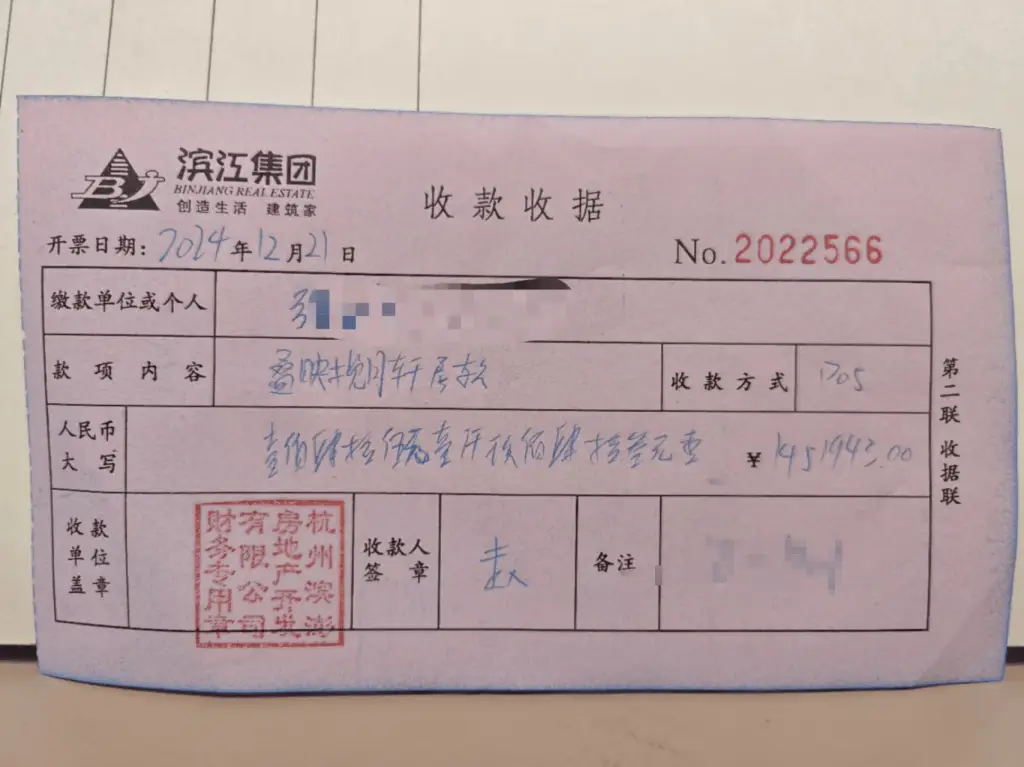 滨江集团
BINJIANG REAL ESTATE
创造生活 建筑家
收款收据
开票日期：2024年12月21日
No. 2022566
缴款单位或个人
款项内容 映月轩房款 收款方式 POS
人民币大写 壹佰肆拾伍万壹仟玖佰肆拾叁元整 ￥1451943.00
收款单位盖章
杭州滨澎
房地产开发
有限公司
财务专用章
收款人签章
备注
第二联 收据联